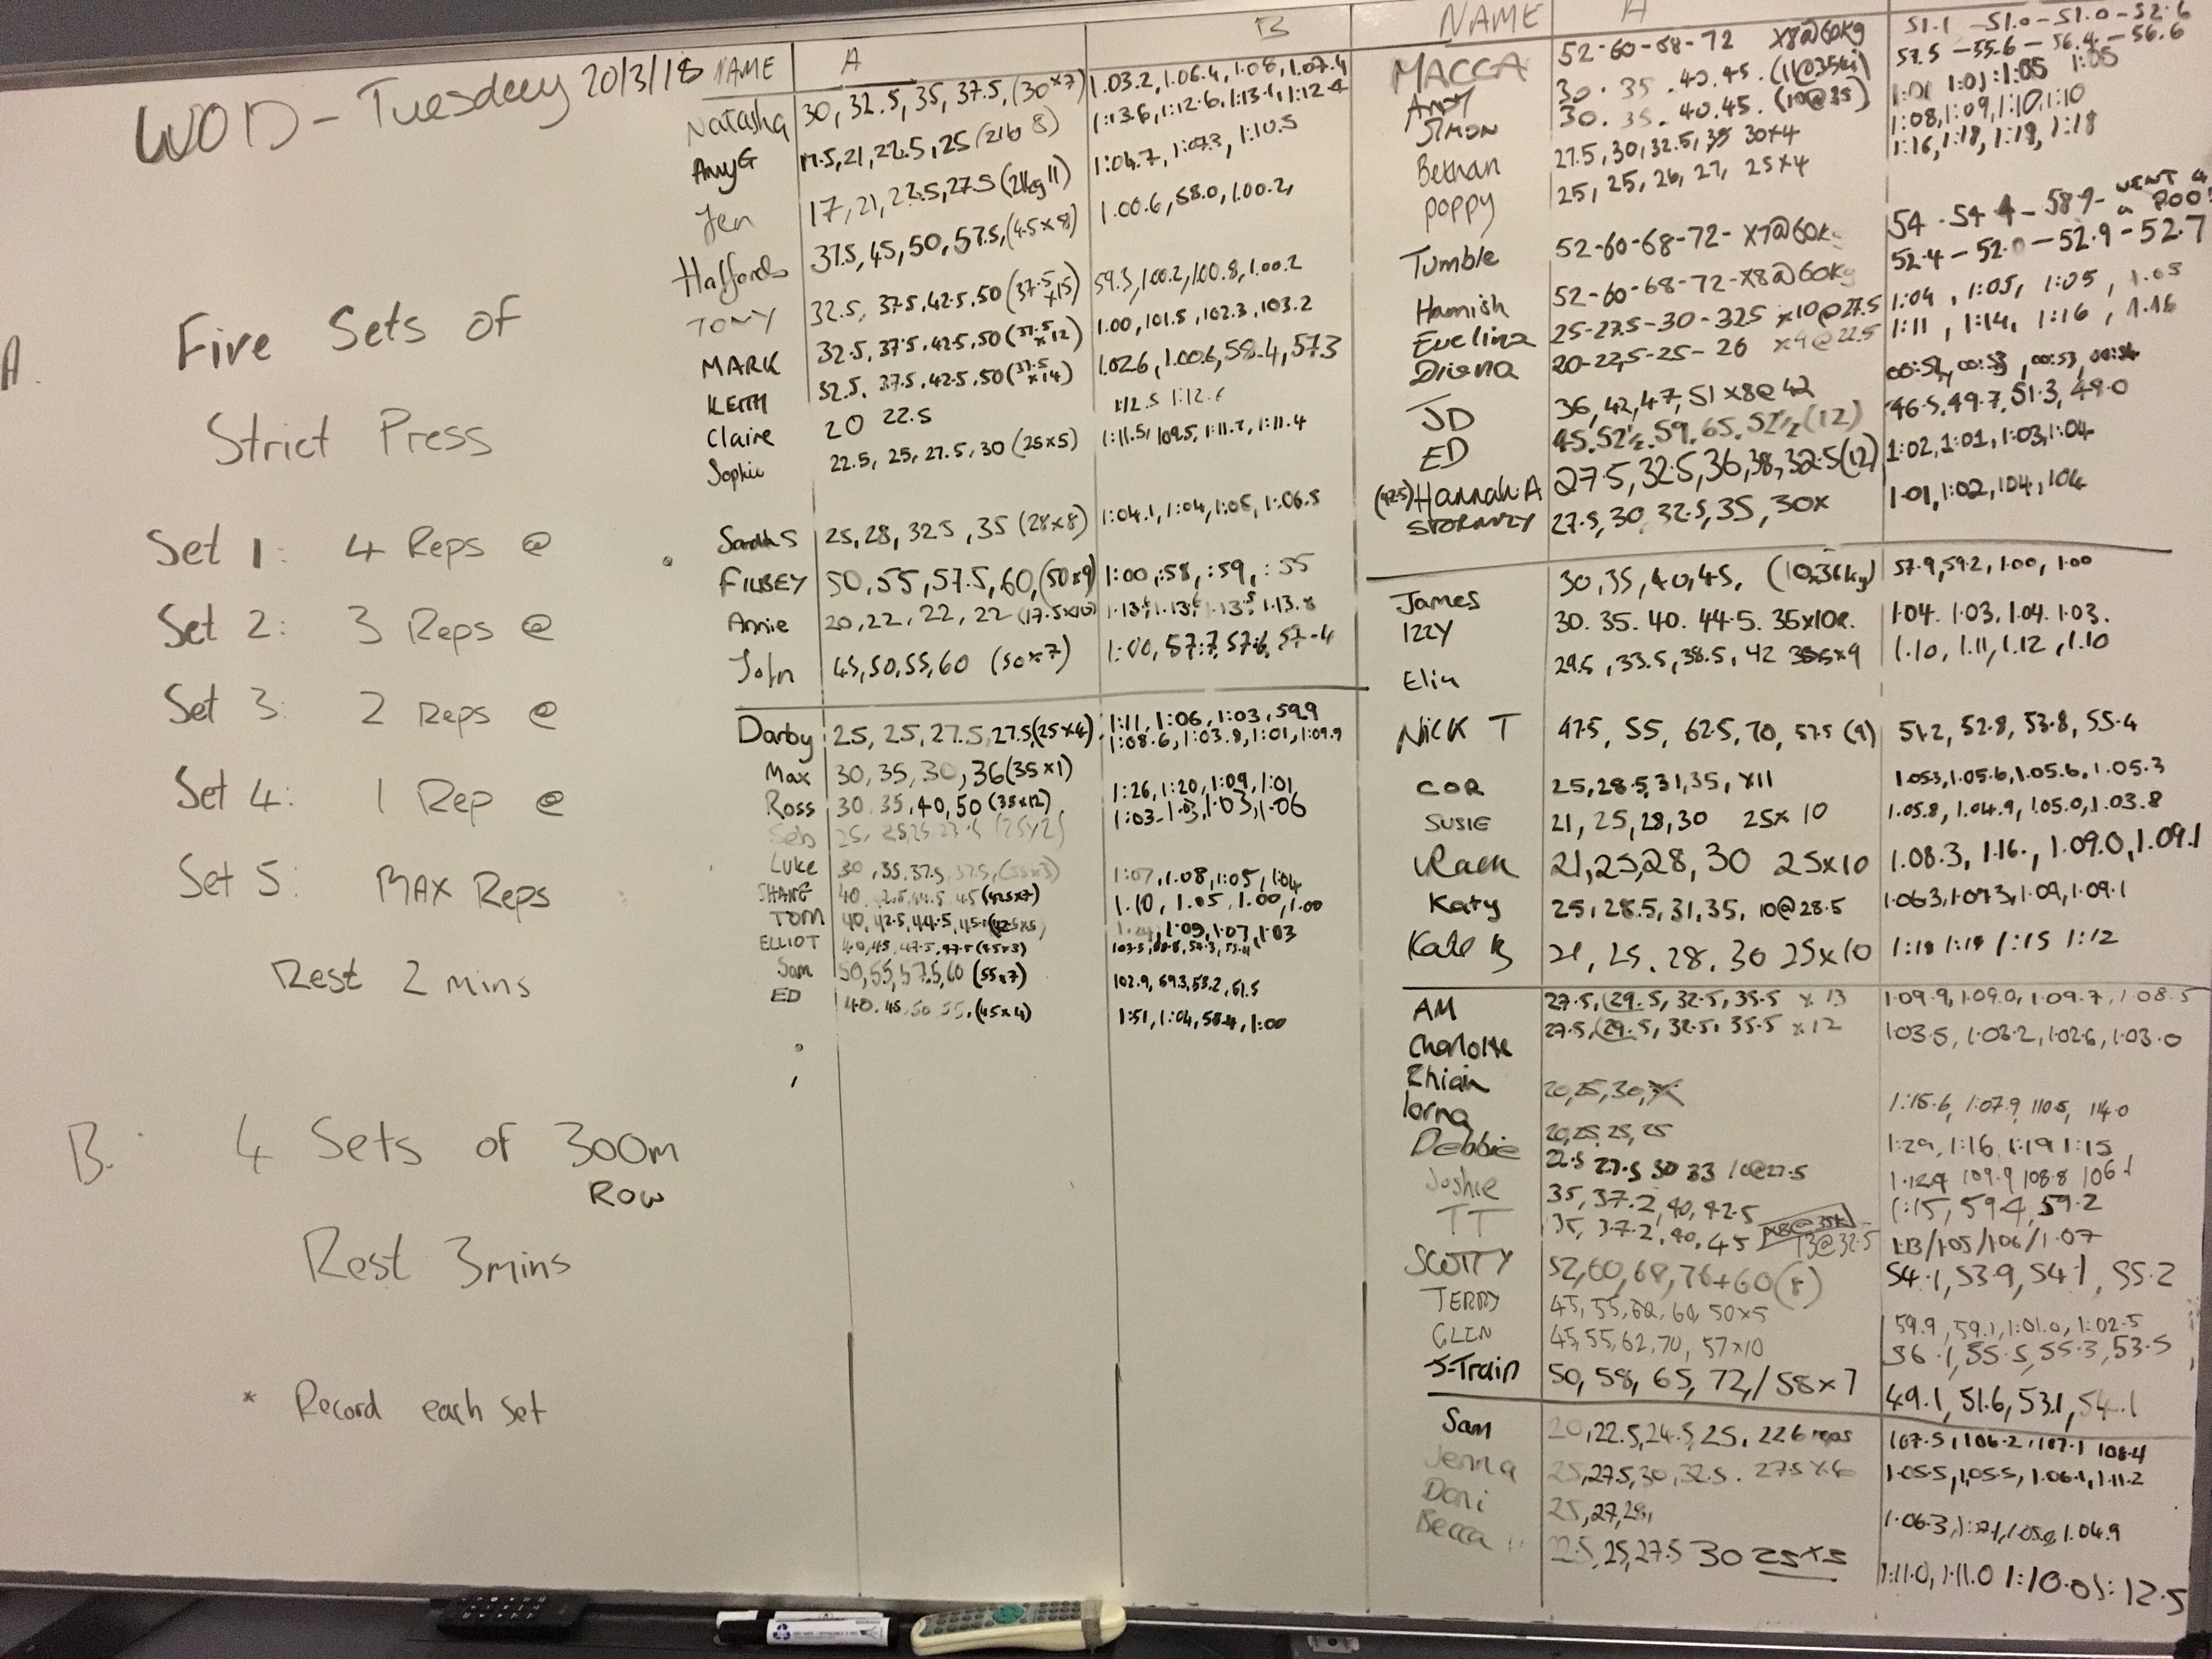 WOD - Tuesday 20/3/18
A. Five Sets of
Strict Press
Set 1: 4 Reps @
Set 2: 3 Reps @
Set 3: 2 Reps @
Set 4: 1 Rep @
Set 5: MAX Reps
Rest 2 mins
B. 4 Sets of 300m
Row
Rest 3mins
* Record each set
NAME A B
Natasha 30, 32.5, 35, 37.5, (30x7) 1.03.2, 1.06.4, 1.08, 1.07.4
AmyG 17.5, 21, 22.5, 25 1:13.6, 1:12.6, 1:13.1, 1:12.4
Jen 17, 21, 22.5, 27.5 (21kg 11) 1:04.7, 1:07.3, 1:10.5
Halfords 37.5, 45, 50, 57.5, (45x8) 1.00.6, 58.0, 1.00.2,
TONY 32.5, 37.5, 42.5, 50 (37.5 x15) 59.3, 1.00.2, 1.00.8, 1.00.2
MARK 32.5, 37.5, 42.5, 50 (37.5 x12) 1.00, 101.5, 102.3, 103.2
KEITH 32.5, 37.5, 42.5, 50 (37.5 x14) 1.02.6, 1.00.6, 58.4, 57.3
Claire 20 22.5 1:12.5 1:12.6
Sophie 22.5, 25, 27.5, 30 (25x5) 1:11.5, 109.5, 1:11.2, 1:11.4
Sarah S 25, 28, 32.5, 35 (28x8) 1:04.1, 1:04, 1:05, 1:06.5
FILBEY 50, 55, 57.5, 60, (50x9) 1:00, :58, :59, :55
Annie 20, 22, 22, 22 (17.5x10) 1.13.8
John 45, 50, 55, 60 (50x7) 1:00, 57.7, 57.6, 57.4
Darby 25, 25, 27.5, 27.5, (25x4) 1:11, 1:06, 1:03, 59.9
1:08.6, 1:03.8, 1:01, 1:09.9
Max 30, 35, 30, 36 (35x1)
Ross 30, 35, 40, 50 (35x12) 1:26, 1:20, 1:09, 1:01
Seb 25, (25x2) 1:03, 1:06
Luke 30, 35, 37.5, 37.5, 1:07, 1.08, 1:05, 1:04
SHANE 40 45 (42.5x7) 1.10, 1.05, 1.00, 1.00
TOM 40, 42.5, 44.5, 45 1:09, 1:07, 1:03
ELLIOT 40, 45, 47.5, 47.5 (45x3)
Sam 50, 55, 57.5, 60 (55x7) 102.9, 59.3, 53.2, 51.5
ED 40, 45, 50, 55, (45x4) 1:51, 1:04, 58.4, 1:00
NAME A
MACCA 52-60-68-72 X8@60kg 51.1 - 51.0 - 51.0 - 52.6
Andy 30. 35. 40. 45. 57.5 - 55.6 - 56.4 - 56.6
SIMON 30. 35. 40. 45. (10@35) 1:01 1:01:1:05 1:05
Bethan 27.5, 30, 32.5, 35 30x4 1:08, 1:09, 1:10, 1:10
Poppy 25, 25, 26, 27, 25x4 1:16, 1:18, 1:18
Tumble 52-60-68-72- X7@60kg 54 - 54.4 - 58.9 - WENT 4 a POO!
Hamish 52-60-68-72-X8@60kg 52.4 - 52.0 - 52.9 - 52.7
Evelina 25-27.5-30-32.5 x10@27.5 1:04, 1:05, 1:05, 1.05
Diana 20-22.5-25-26 x9@22.5 1:11, 1:14, 1:16, 1.16
JD 36, 42, 47, 51 x8@42 00:52, 00:53, 00:53, 00:54
ED 45, 52½, 59, 65, 52½ (12) 46.5, 49.7, 51.3, 49.0
(42.5) Hannah A 27.5, 32.5, 36, 38, 32.5 (12) 1:02, 1:01, 1:03, 1:04
STORMZY 27.5, 30, 32.5, 35, 30x 1.01, 1:02, 104, 104
James 30, 35, 40, 45, (10,36kg) 57.9, 59.2, 1.00, 1.00
IZZY 30. 35. 40. 44.5. 35x10R. 1.04. 1.03. 1.04. 1.03.
Elin 29.5, 33.5, 38.5, 42 1.10, 1.11, 1.12, 1.10
NICK T 47.5, 55, 62.5, 70, 57.5 (9) 51.2, 52.8, 53.8, 55.4
COR 25, 28.5, 31, 35, x11 1.05.3, 1.05.6, 1.05.6, 1.05.3
SUSIE 21, 25, 28, 30 25x10 1.05.8, 1.04.9, 1.05.0, 1.03.8
21, 25, 28, 30 25x10 1.08.3, 1.16., 1.09.0, 1.09.1
Katy 25, 28.5, 31, 35, 10@28.5 1.06.3, 1.07.3, 1.09, 1.09.1
Kate B 21, 25. 28. 30 25x10 1:18 1:15 1:12
AM 27.5, (29.5, 32.5, 35.5 x13 1.09.9, 1.09.0, 1.09.7, 1.08.5
Charlotte 27.5, (29.5, 32.5, 35.5 x12 1.03.5, 1.03.2, 1.02.6, 1.03.0
Rhian
lorna 20, 25, 30, 1:15.6, 1:07.9, 110.5, 114.0
Debbie 20, 25, 25, 25 1:29, 1:16, 1:19 1:15
Joshie 22.5 27.5 30 33 10@27.5 1.12.9 109.9 108.8 106.1
TT 35, 37.2, 40, 42.5 1:15, 59.4, 59.2
35, 37.2, 40, 45 13@32.5 1:13/1:05/1:06/1.07
SCOTTY 52, 60, 68, 76+60 (8) 54.1, 53.9, 54.1, 55.2
TERRY 45, 55, 62, 50x5
GLEN 45, 55, 62, 70, 57x10 59.9, 59.1, 1:01.0, 1:02.5
56.1, 55.5, 55.3, 53.5
J-Train 50, 58, 65, 72, / 58x7 49.1, 51.6, 53.1, 54.1
Sam 20, 22.5, 24.5, 25, 22 6 reps 107.5, 106.2, 107.1 108.4
Jenna 25, 27.5, 30, 32.5. 1.05.5, 1.05.5, 1.06.1, 1.11.2
Dani 25, 27, 28, 1.06.3, 1.04.9
Becca 22.5, 25, 27.5 30 25x5 1:11.0, 1:11.0 1:10.0 1:12.5